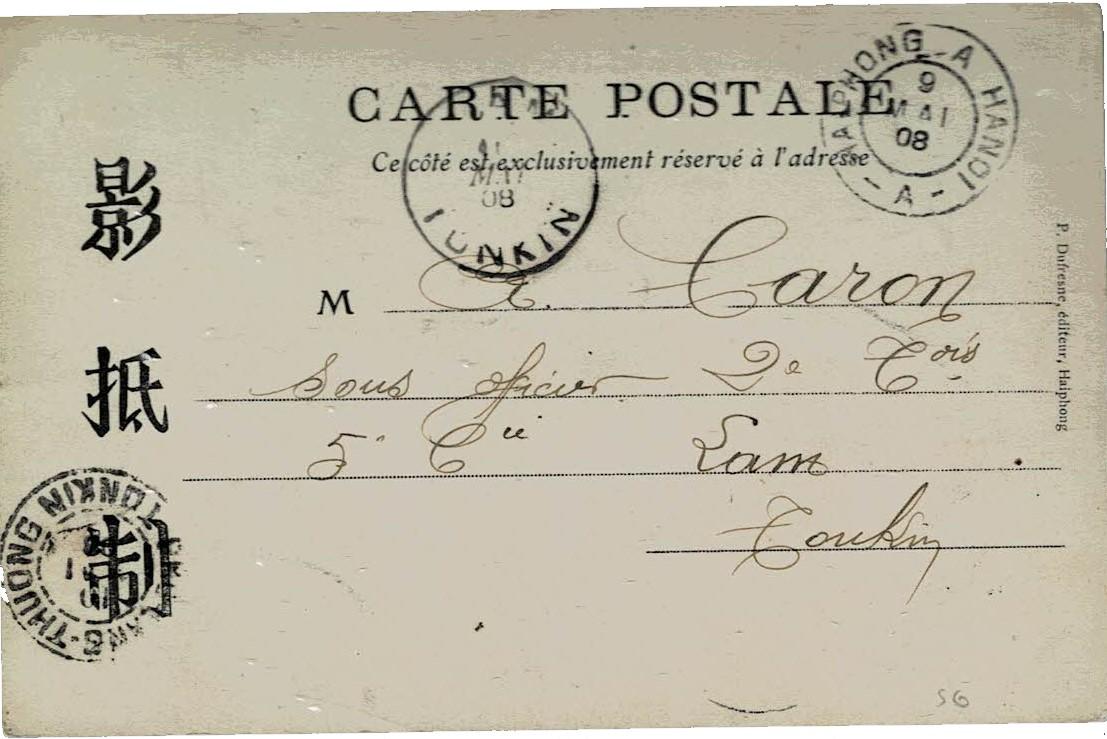 CARTE POSTALE
Ce côté est exclusivement réservé à l'adresse
HAIPHONG A HANOI
9
MAI
08
- A -
MAI
08
TONKIN
影
抵
制
M A. Caron
Sous officier 2e Tois
5e Cie Lam
Tonkin
P. Dufresne, éditeur, Haiphong
THUONG TONKIN
56